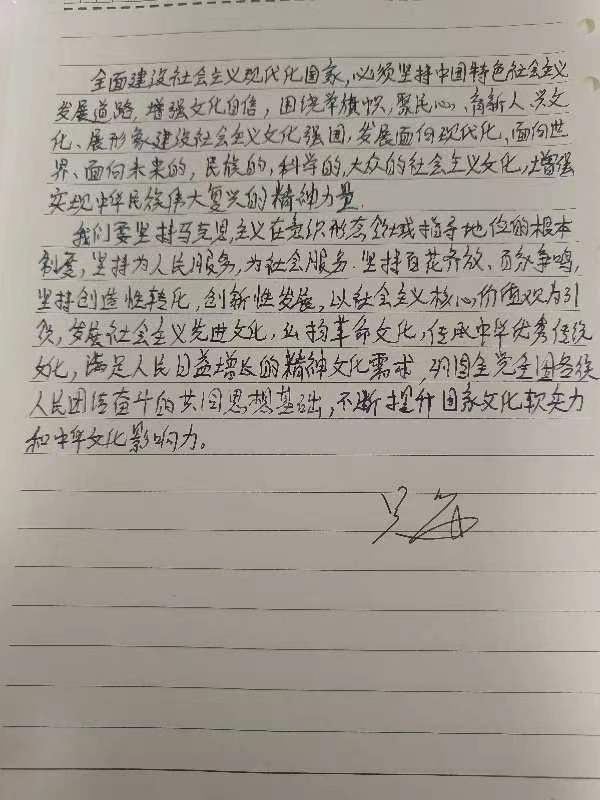 全面建设社会主义现代化国家,必须坚持中国特色社会主义
发展道路,增强文化自信,围绕举旗帜,聚民心、育新人、兴文
化、展形象建设社会主义文化强国,发展面向现代化、面向世
界、面向未来的,民族的,科学的,大众的社会主义文化,增强
实现中华民族伟大复兴的精神力量.
我们要坚持马克思主义在意识形态领域指导地位的根本
制度,坚持为人民服务,为社会服务.坚持百花齐放、百家争鸣,
坚持创造性转化,创新性发展,以社会主义核心价值观为引
领,发展社会主义先进文化,弘扬革命文化,传承中华优秀传统
文化,满足人民日益增长的精神文化需求,巩固全党全国各族
人民团结奋斗的共同思想基础,不断提升国家文化软实力
和中华文化影响力。